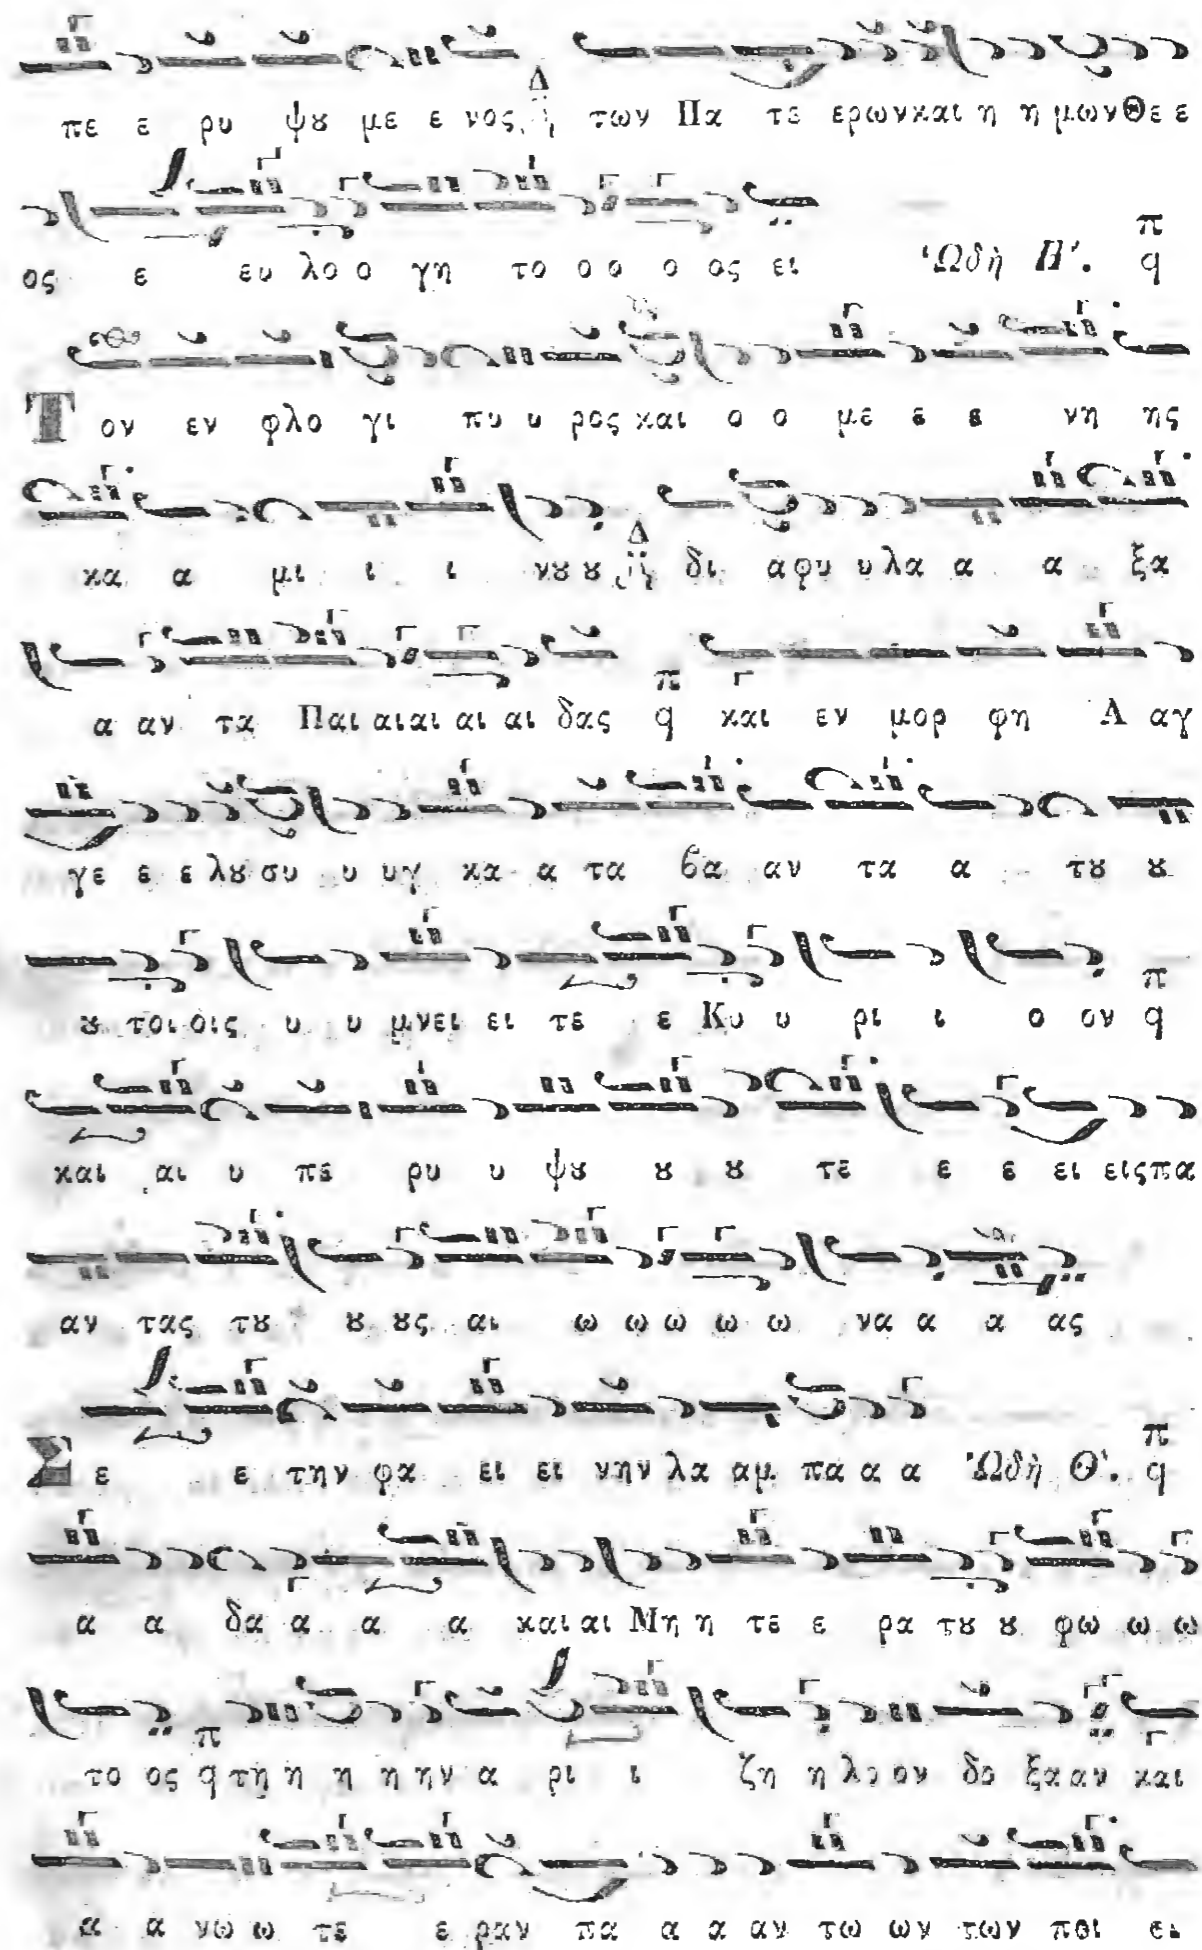 πε ε ρυ ψȣ με ε νος Δ των Πα τε ερωνκαι η η μωνΘε ε
ος ε ευ λο ο γη το ο ο ο ος ει Ὠδὴ Η'. π q
Τ ον εν φλο γι πυ υ ρος και ο ο με ε ε νη ης
κα α μι ι ι νȣȣ Δ δι αφυ υ λα α α ξα
α αν τα Παι αιαι αι αι δας π q και εν μορ φη Α αγ
γε ε ε λȣ συ υ υγ κα α τα βα αν τα α τȣ ȣ
ȣ τοι οις υ υ μνει ει τε ε Κυ υ ρι ι ο ον π q
και αι υ πε ρυ υ ψȣ ȣ ȣ τε ε ε ει ειςπα
αν τας τȣ ȣ ȣς αι ω ω ω ω ω να α α ας
Σ ε ε την φα ει ει νην λα αμ πα α α Ὠδὴ Θ'. π q
α α δα α α α και αι Μη η τε ε ρα τȣ ȣ φω ω ω
το ος π q τη η η η ην α ρι ι ζη η λο ον δο ξααν και
α α νω ω τε ε ραν πα α α αν τω ων των ποι ει